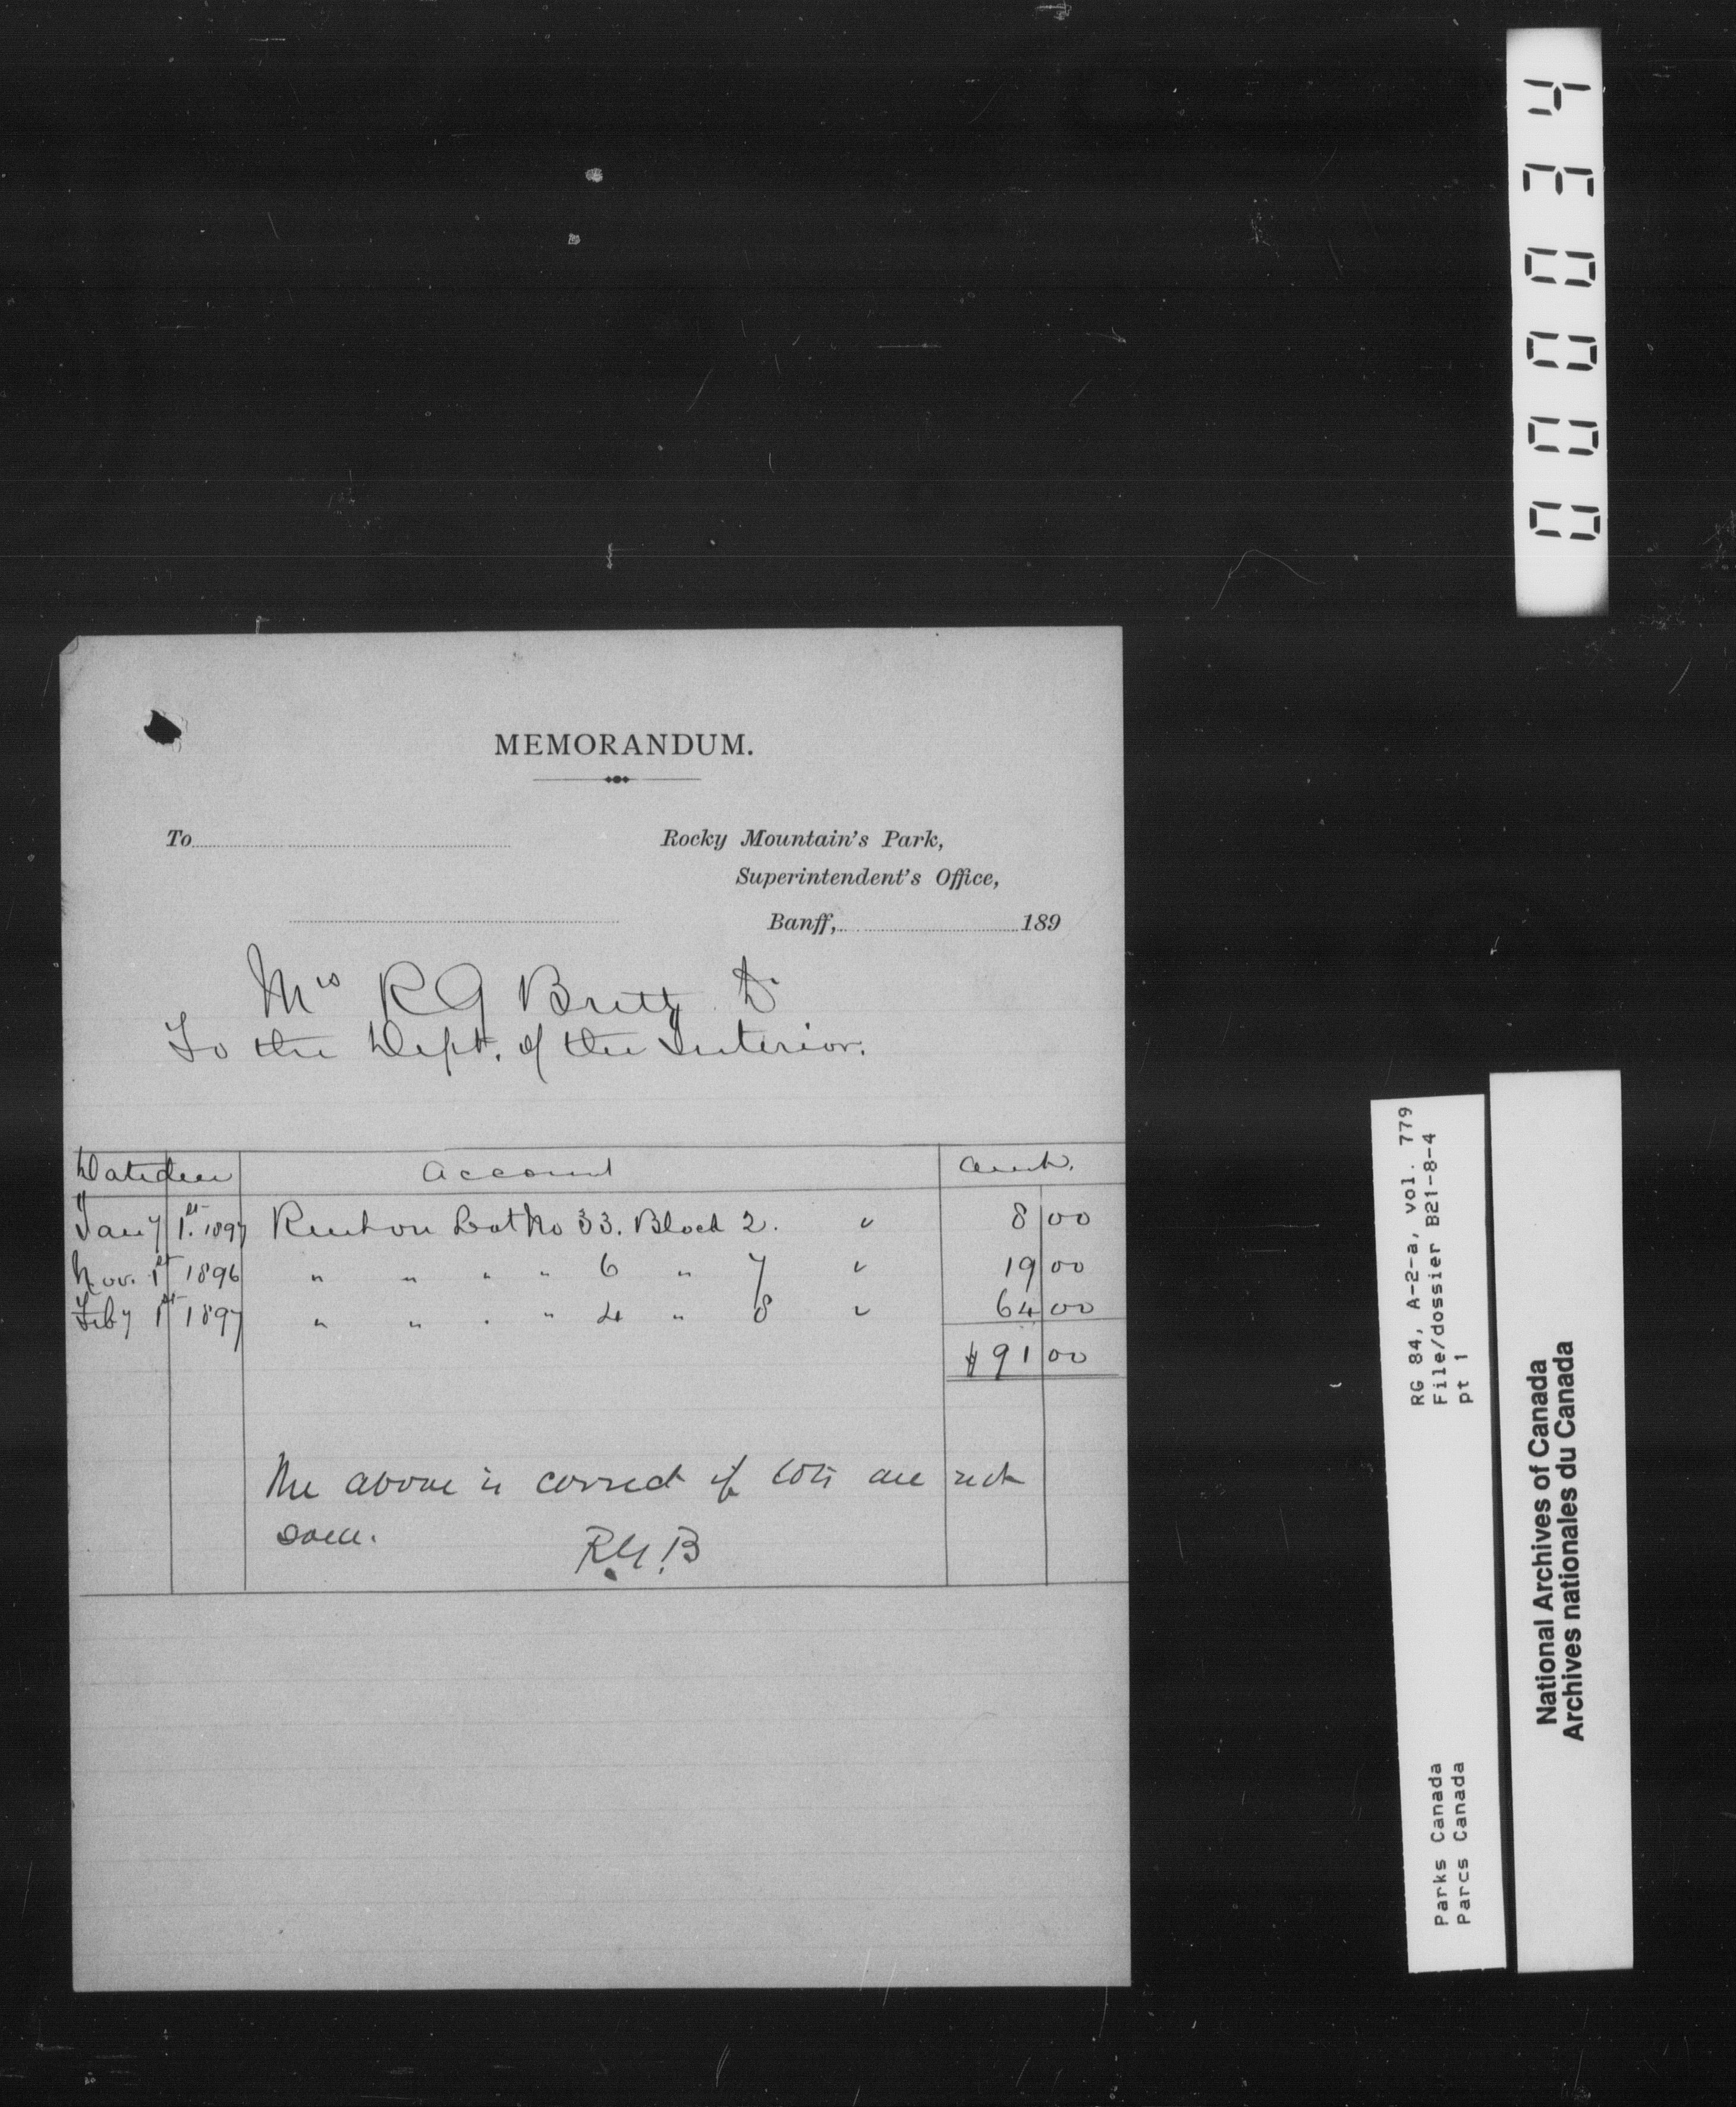 000034
MEMORANDUM.
To
Rocky Mountain's Park,
Superintendent's Office,
Banff, 189
Mrs R G Brett Dr
To the Dept. of the Interior.
Date due Account Amt.
Jany 1st. 1897 Rent on Lot No 33. Block 2. " 8 00
Nov. 1st 1896 " " " " 6 " 7 " 19 00
Feby 1st 1897 " " " " 4 " 8 " 64 00
$91 00
The above is correct if lots are not
sold.
R.G.B
RG 84, A-2-a, vol. 779
File/dossier B21-8-4
pt 1
Parks Canada
Parcs Canada
National Archives of Canada
Archives nationales du Canada